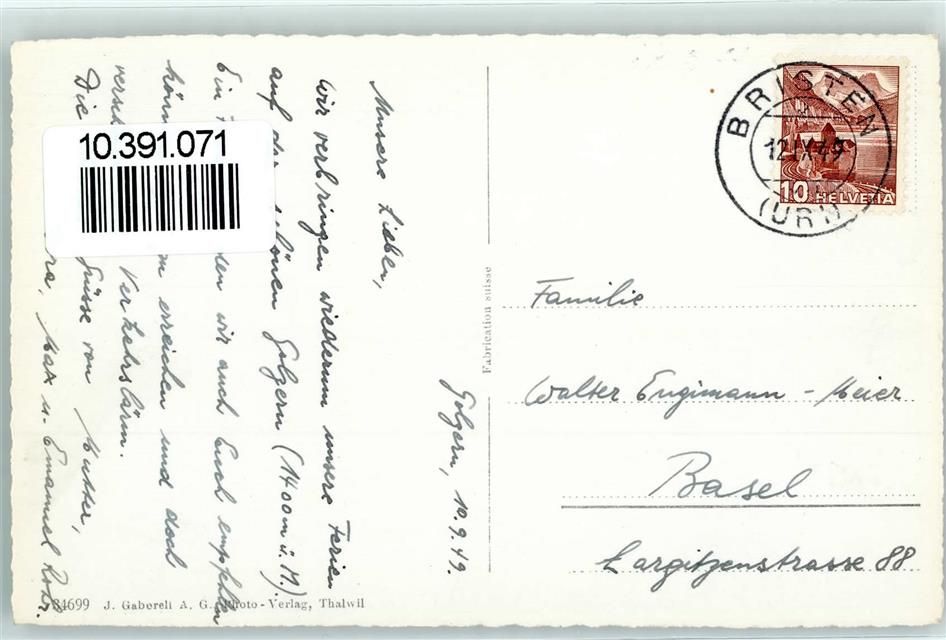 10.391.071
Golzern, 10.9.49.
Unsere Lieben,
Wir verbringen wiederum unsere Ferien
auf der schönen Golzern (1400 m ü. M).
Ein den wir auch Euch empfehlen
kön m erreichen und doch
versch Verkehrslärm.
Die Grüsse von Mutter,
ra, Max u. Emanuel
BRISTEN
12.IX.49
(URI)
10 HELVETIA
Familie
Walter Engimann - Meier
Basel
Largitzenstrasse 88
Fabrication suisse
34699 J. Gaberell A. G., Photo-Verlag, Thalwil